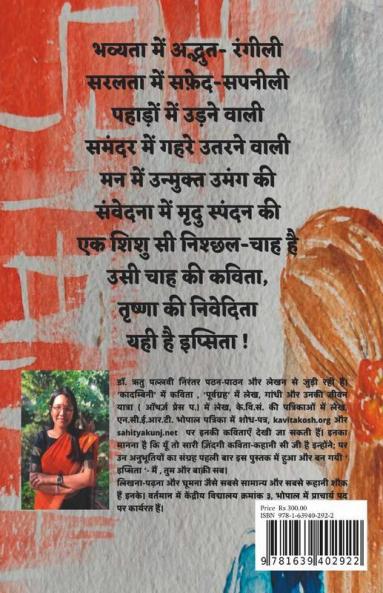 भव्यता में अद्भुत- रंगीली
सरलता में सफ़ेद-सपनीली
पहाड़ों में उड़ने वाली
समंदर में गहरे उतरने वाली
मन में उन्मुक्त उमंग की
संवेदना में मृदु स्पंदन की
एक शिशु सी निश्छल-चाह है
उसी चाह की कविता,
तृष्णा की निवेदिता
यही है इप्सिता !
डॉ. ऋतु पल्लवी निरंतर पठन-पाठन और लेखन से जुड़ी रही हैं।
'कादम्बिनी' में कविता , 'पूर्वग्रह' में लेख, गांधी और उनकी जीवन
यात्रा ( ऑथर्ज़ प्रेस प.) में लेख, के.वि.सं. की पत्रिकाओं में लेख,
एन.सी.ई.आर.टी. भोपाल पत्रिका में शोध-पत्र, kavitakosh.org और
sahityakunj.net पर इनकी कविताएँ देखी जा सकती हैं। इनका
मानना है कि यूँ तो सारी ज़िंदगी कविता-कहानी सी जी है इन्होंने; पर
उन अनुभूतियों का संग्रह पहली बार इस पुस्तक में हुआ और बन गयी '
इप्सिता '- मैं , तुम और बाक़ी सब।
लिखना-पढ़ना और घूमना जैसे सबसे सामान्य और सबसे रूहानी शौक़
हैं इनके। वर्तमान में केंद्रीय विद्यालय क्रमांक ३, भोपाल में प्राचार्य पद
पर कार्यरत हैं।
Price Rs 300.00
ISBN 978-1-63940-292-2
9 781639 402922